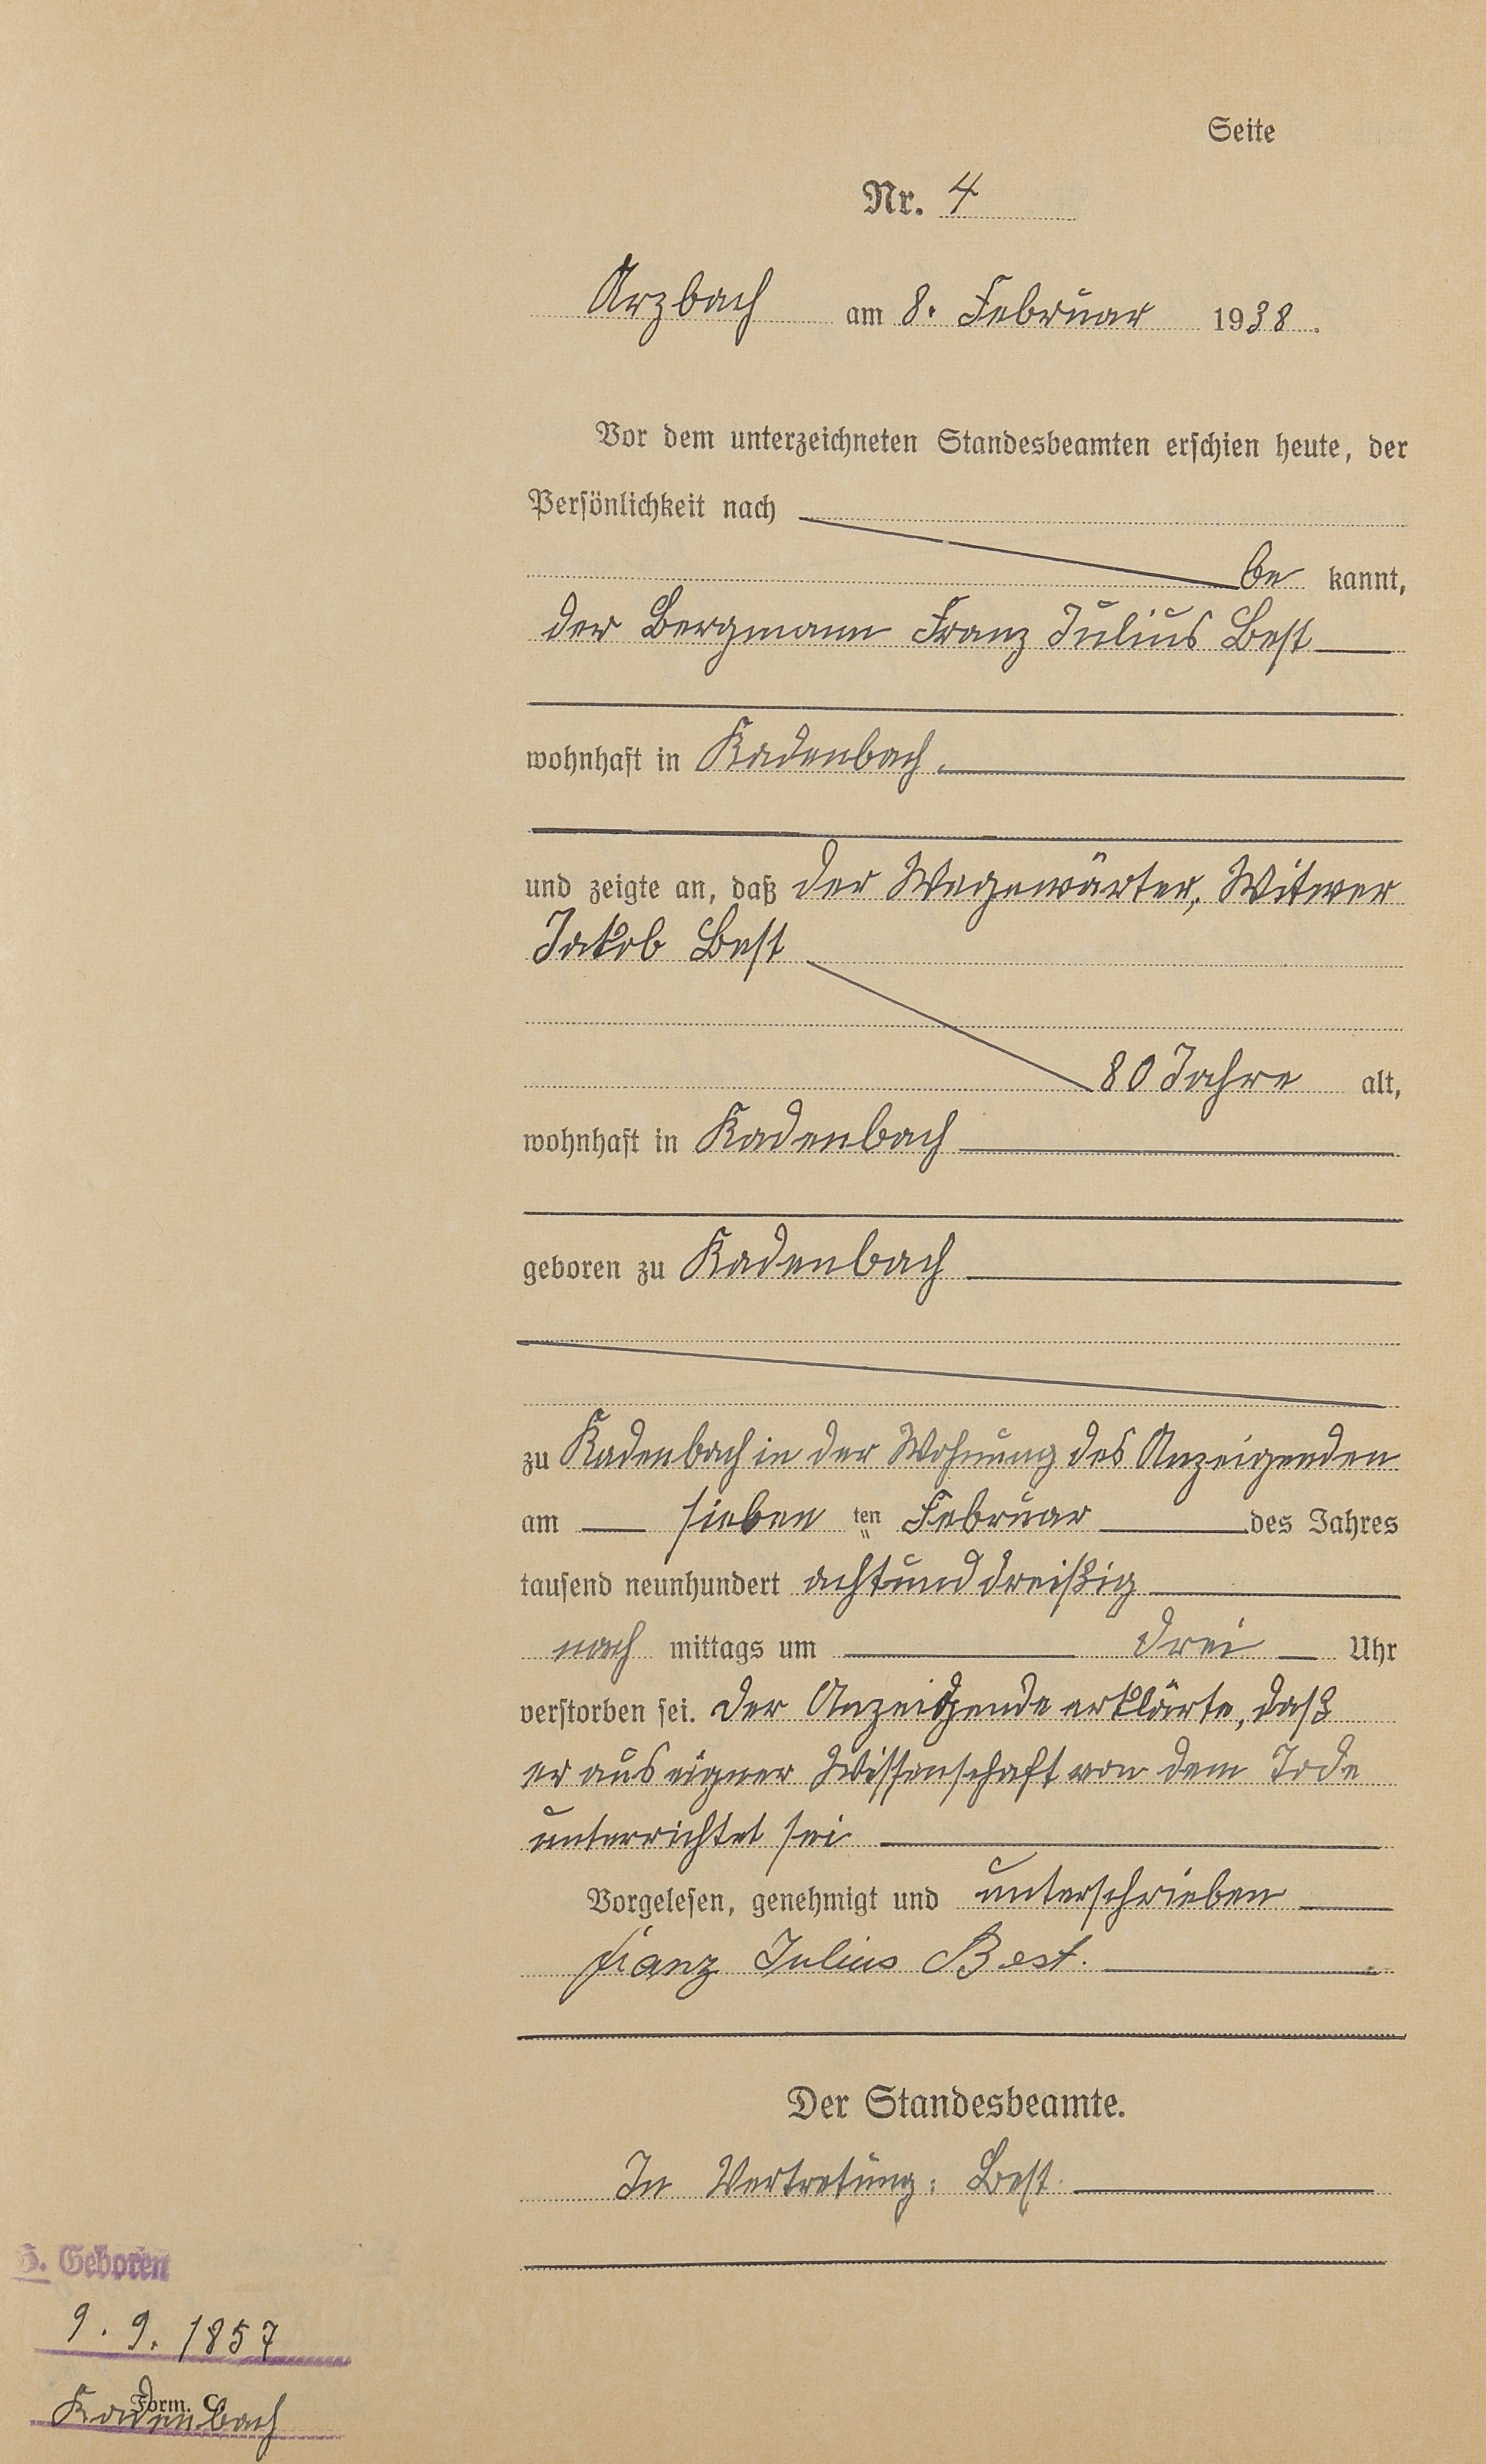 Seite
Nr. 4
Arzbach am 8. Februar 1938.
Vor dem unterzeichneten Standesbeamten erschien heute, der
Persönlichkeit nach
be kannt,
der Bergmann Franz Julius Best
wohnhaft in Kadenbach.
und zeigte an, daß der Wegewärter, Witwer
Jakob Best
80 Jahre alt,
wohnhaft in Kadenbach
geboren zu Kadenbach
zu Kadenbach in der Wohnung des Anzeigenden
am sieben ten Februar des Jahres
tausend neunhundert achtunddreißig
nach mittags um drei Uhr
verstorben sei. Der Anzeigende erklärte, daß
er aus eigner Wissenschaft von dem Tode
unterrichtet sei
Vorgelesen, genehmigt und unterschrieben
Franz Julius Best.
Der Standesbeamte.
In Vertretung: Best
Geboren
9. 9. 1857
Kadenbach
Form. C.